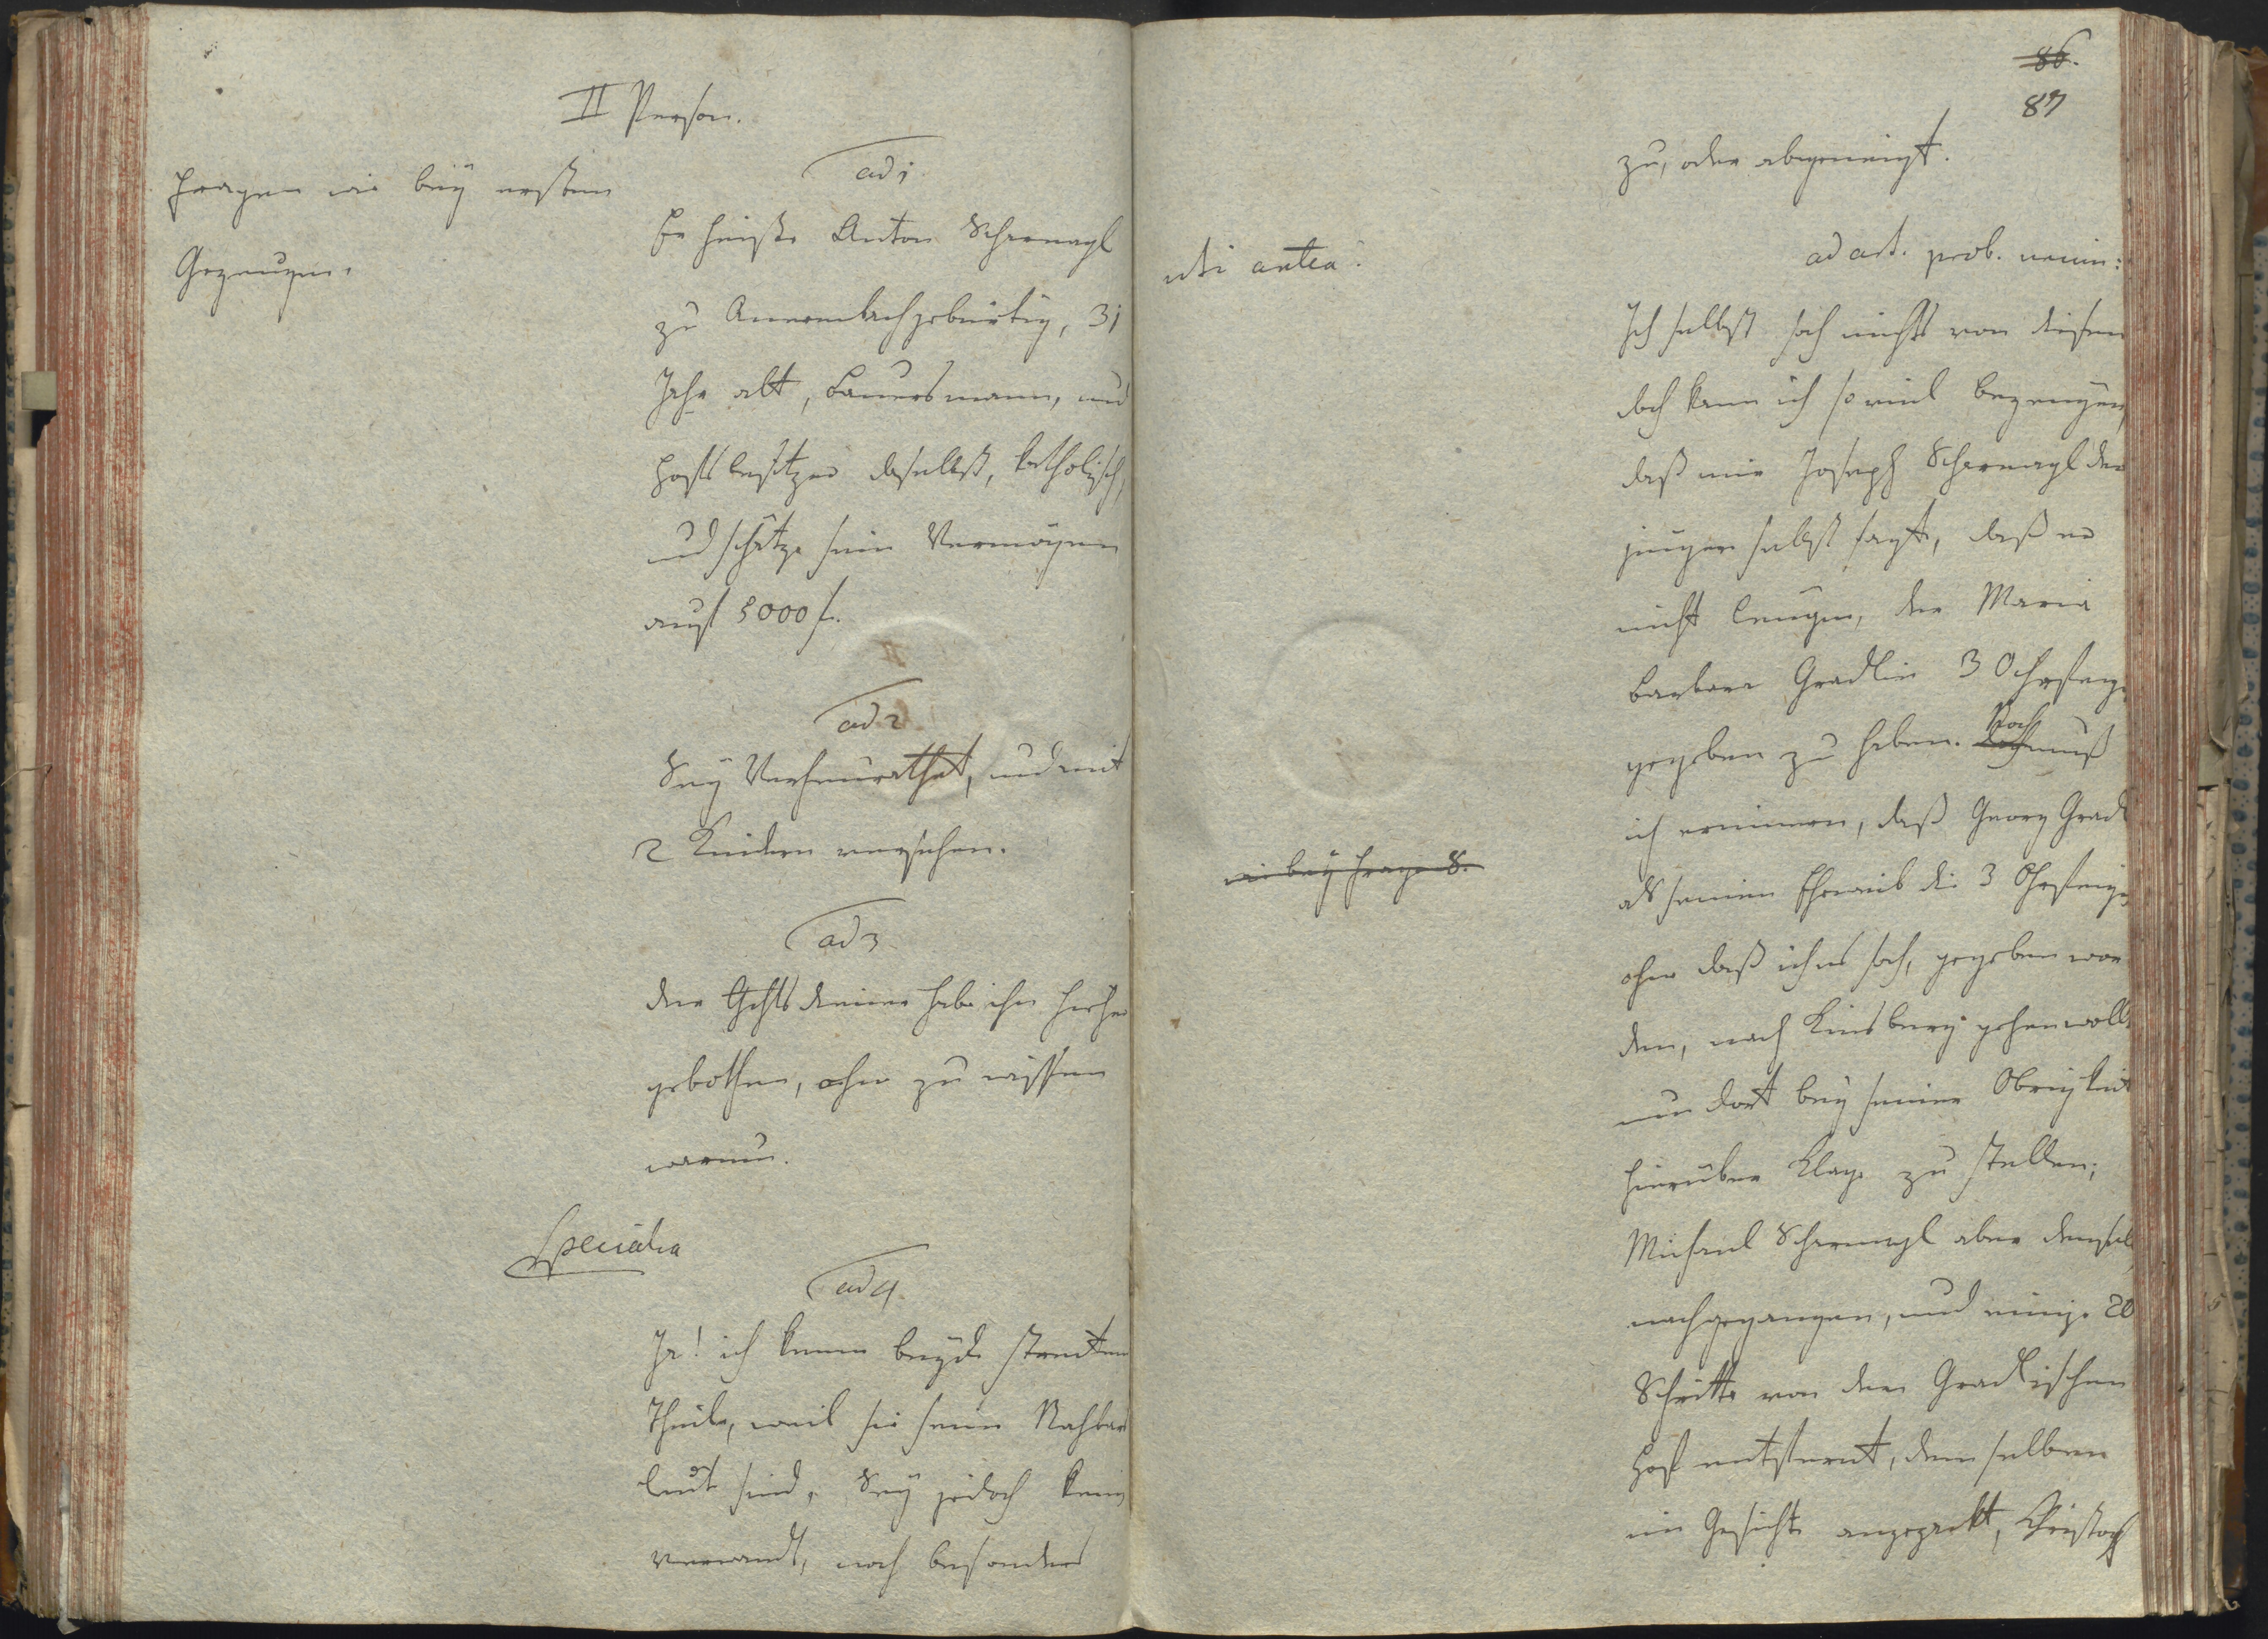 II Person.
Fragen wie beÿ ersten
Gezeugen.
ad 1
Er heiße Anton Scharnagl
zu Annembach gebürtig, 31
Jahr alt, Bauersmann, und
Hofsbesitzer daselbst, katholisch,
und schätze sein Vermögen
auf 5000 f.
ad 2
Seÿ Verheurathet, und mit
2 Kindern versehen.
ad 3
der Gehts diener habe ihn hieher
gebothen, ohne zu wissen
warum.
Specialia
ad 4
Ja! ich kenne beÿde streiten
Theile, weil sie seine Nachbar
leut sind, Seÿ jedoch kein
verwandt, noch besonders
86.
87
zu, oder abgeneigt.
uti antea.
ad art. prob. neuin:
Ich selbst sah nichts von diesem
doch kann ich so viel bezeugen,
daß mir Joseph Scharnagl der
junger selbst sagt, daß er
nicht leugne, der Maria
Barbara Gradlin 3 Ohrfeige
gegeben zu haben. Noch muß
ich erinnern, daß Georg Gradl
als seinem Eheweib die 3 Ohrfeigen
ohne daß ich es sah, gegeben wor
den, nach Kinsberg gehen wollte
um dort beÿ seiner Obrigkeit
hierüber Klage zu stellen;
Michael Scharnagl aber demselb
nachgegangen, und einige 20
Schritte von dem Gradlischen
Hof entfernt, demselben
im Gesichte angepackt, Christoph
wie beÿ Frage 8.